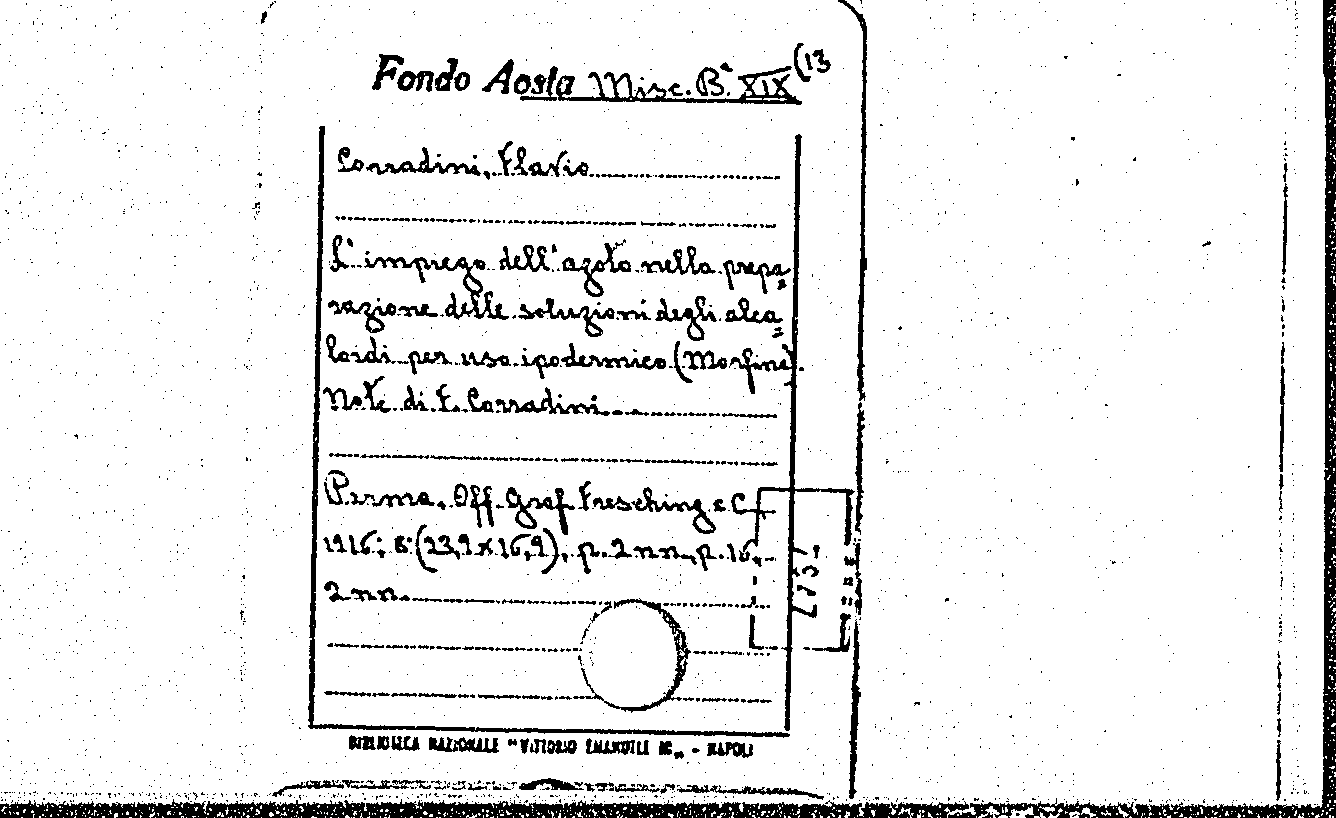 Fondo Aosta Misc. Bª XIX (13
Corradini, Flavio
L'impiego dell'azoto nella prepa=
razione delle soluzioni degli alca=
loidi per uso ipodermico (Morfina).
Note di F. Corradini.
Parma, Off. Graf. Fresching e C.,
1916; 8° (23,9 x 16,9), p. 2 nn., p. 16,
2 nn.
BIBLIOTECA NAZIONALE "VITTORIO EMANUELE III„ - NAPOLI